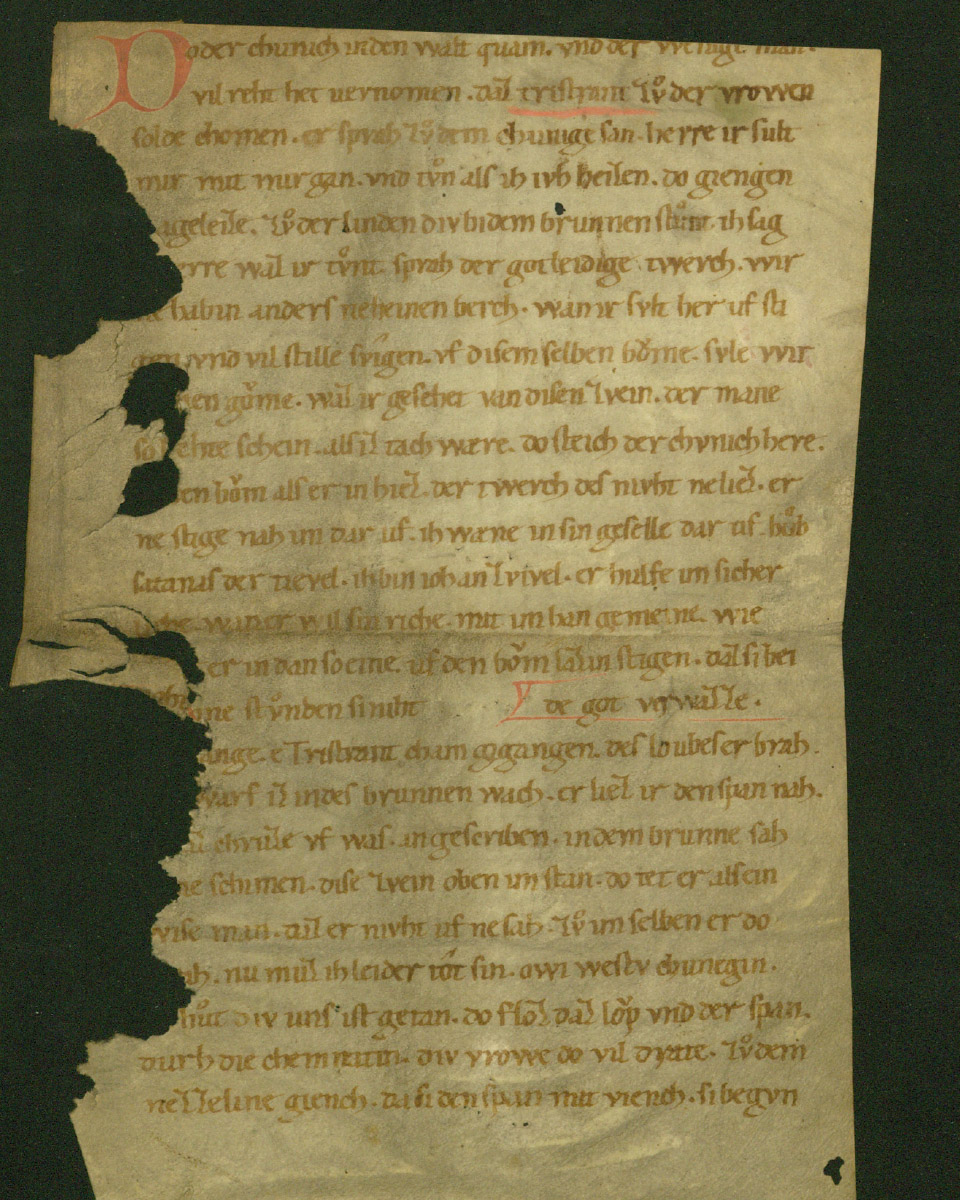 Do der chunich in den walt quam. vnd der wenige man.
vil reht het uernomen. daz tristrant zuͦ der vrowen
solde chomen. er sprah zuͦ dem chunige san. herre ir sult
mir mit nur gan. vnd tuͦn als ih ivh heizen. do giengen
zuͦ der linden div bi dem brunnen stuͦnt. ih sag
waz ir tuͦnt. sprah der gotleidige twerch. wir
habin anders neheinen berch. wan ir svlt her uf sti
gen. vnd vil stille svîgen. vf disem selben boͮme. svle wir
goͮme. waz ir gesehet van disen zvein. der mane
schein. als iz tach wære. do steich der chvnich here.
den boͮm als er in hiez. der twerch des nivht ne liez. er
ne stige nah im dar uf. ih wæne in sin geselle dar uf. huͦb
satanas der tievel. ih bin ioh an zvivel. er hulfe im sicher
wan er wil sin riche. mit im han gemeine. wie
er in dan so eine. uf den boͮm laz in stigen. daz si bei
stuͦnden si niht de got verwazze.
lange. e Tristrant cham gegangen. des loubes er brah.
warf iz in des brunnen wach. er liez ir den span nah.
chrüze vf was. angescriben. in dem brunne sah
schimen. dise zvein oben im stan. do tet er als ein
wise man. daz er nivht uf ne sah. zuͦ im selben er do
nu muͦz ih leider tôt sin. owi westv chunegin.
huͦt div uns ist getan. do floz daz loͮp vnd der span.
durh die chemnatin. div vrowe do vil drate. zuͦ dem
nezzeline giench. da si den span mit viench. si begvn